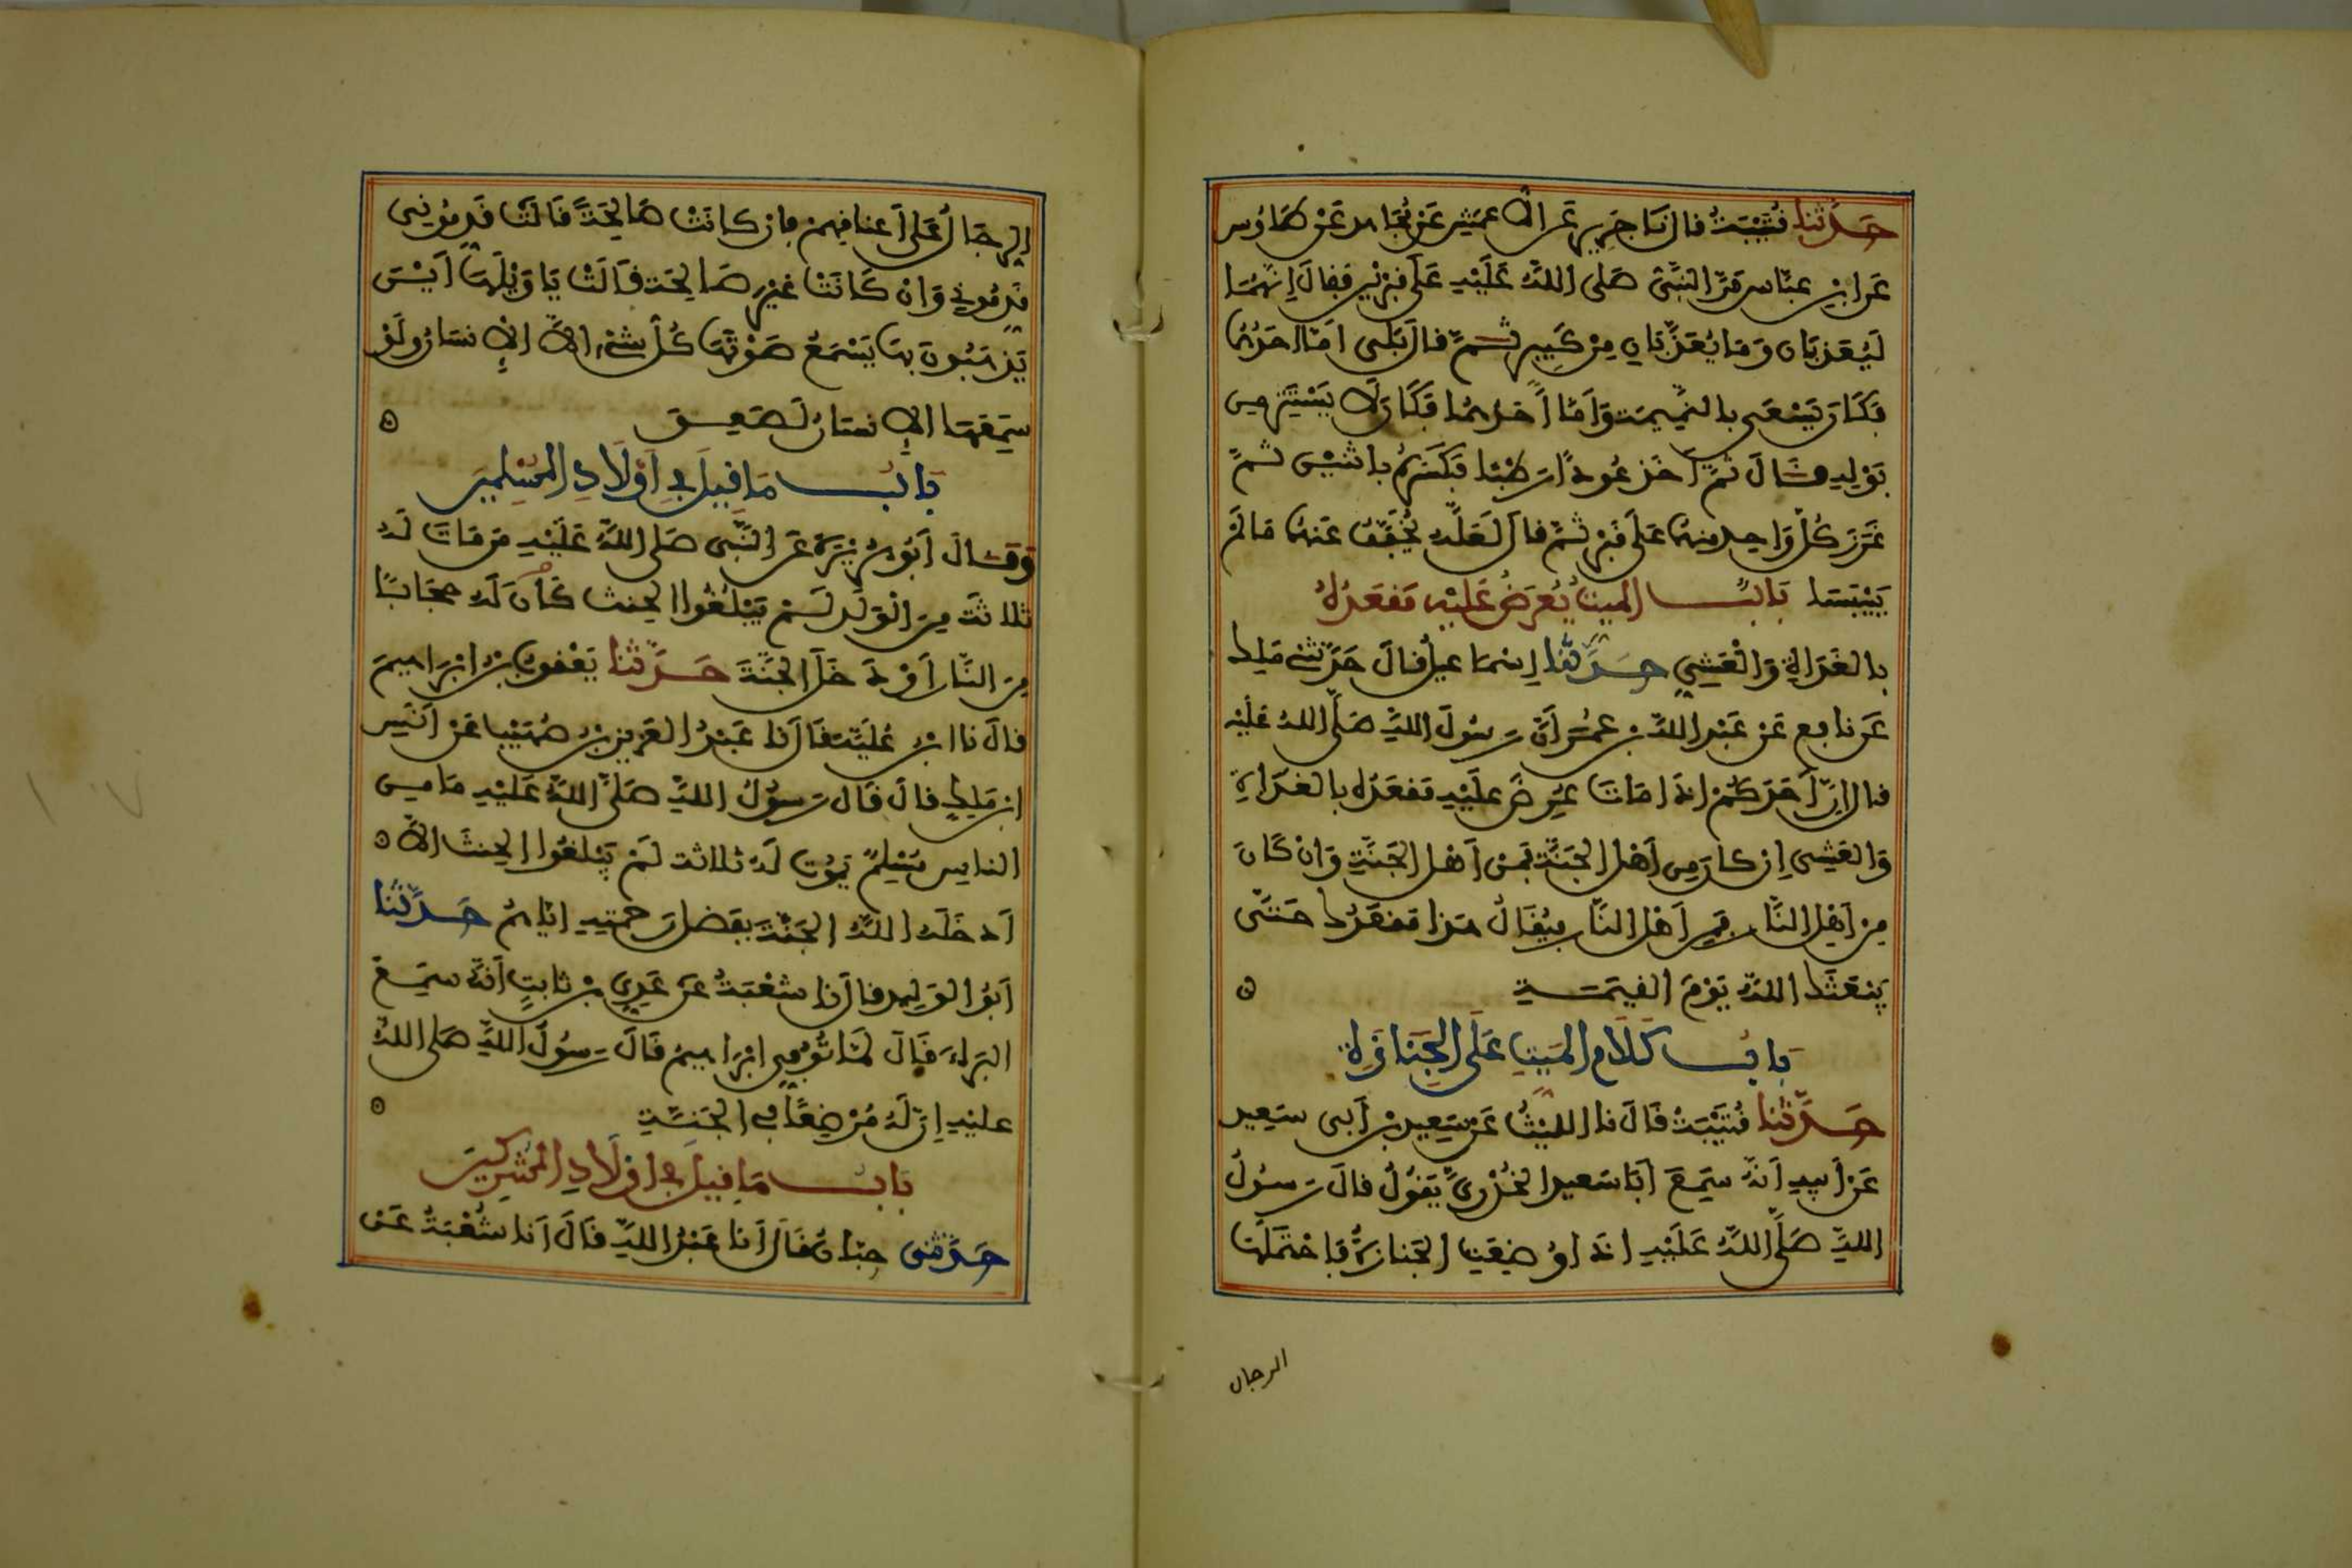 حَدَّثنا قُتَيْبَةُ قال نَا جَرِير عَن الاَعْمَشِ عَنْ مُجَاهد عَنْ طَاوُس
عَن ابْنِ عبَّاس مَرَّ النَّبِيُّ صَلى اللهُ عَلَيْهِ عَلَى قَبْرَيْنِ فقالَ إِنَّهُمَا
لَيُعَذبَانِ وَمَا يُعَذَّبَانِ مِنْ كَبِيرٍ ثُمَّ قالَ بَلَى امَّا احَدُهُمَا
فَكَانَ يَسْعَى بالنَّمِيمَةِ وَأَمَّا أَحَدهُمَا فَكَانَ لَا يَسْتَتِرُ مِن
بَوْلِهِ قَالَ ثُمَّ اَخَذ عُودًا رَطْبًا فَكَسَرَهُ باثنَيْنِ ثُمَّ
غَرَزَ كُلَّ وَاحِدٍ مِنهُمَا عَلَى قَبْرٍ ثُمَّ قالَ لَعَلَّهُ يُخَفَّفُ عَنهُمَا مَا لَمْ
يَيْبَسَا بَابُ المَيتِ يُعْرَضُ عَلَيْهِ مَقعَدُهُ
بالغَدَاةِ وَالْعَشِيِّ حَدَّثَنَا إِسْمَاعِيلُ قَالَ حَدَّثَنِي مَلِك
عَن نافِع عَنْ عَبْدِ اللهِ بن عُمَرَ أَنَّ رَسُولَ اللهِ صَلَّى اللهُ عَلَيْهِ
قالَ إِنَّ أَحَدَكُمْ إِذَا مَاتَ عُرِضَ عَلَيْهِ مَقعَدُهُ بالغَدَاةِ
وَالعَشِي إِن كَانَ مِن أَهْلِ الجَنَّةِ فَمِنْ أَهْلِ الجَنَّةِ وَانْ كَانَ
مِنْ أَهْلِ النَّارِ فَمِن أَهْلِ النَّارِ فيُقَالُ هَذَا مَقعَدُكَ حَتَّى
يَبْعَثَكَ اللهُ يَوْمَ القِيَمَةِ
بَابُ كَلَامِ المَيتِ عَلَى الجَنَازَةِ
حَدَّثَنا قُتَيْبَةُ قَالَ نا اللَّيْثُ عَنْ سَعِيدِ بْنِ أَبِي سَعِيد
عَنْ أَبِيهِ أَنَّهُ سَمِعَ أَبَا سَعِيدٍ الخُدْرِيَّ يَقُولُ قالَ رَسُولُ
اللهِ صَلَّى اللهُ عَلَيْهِ اذَا وُضِعَتِ الجَنَازَةُ فَاحْتَمَلَهَا
الرجال
الرِّجَالُ عَلَى أَعنَاقِهِمْ فإن كانَتْ صَالِحَةً قَالَتْ قَدِّمُونِي
قَدِّمُونِي وَانْ كَانَتْ غَيْرَ صَالِحَة قَالَتْ يَا وَيْلَهَا أَيْنَ
يَذهَبُونَ بِهَا يَسْمَعُ صَوْتَهَا كُلُّ شَيْءٍ إِلاَّ الإِنسَانُ وَلَوْ
سَمِعَهَا الإِنسَانُ لَصَعِقَ
بَابُ مَا قِيلَ فِي أَوْلَادِ المُسْلِمِينَ
وَقَالَ أَبُو هُرَيْرَةَ عَن النَّبِي صَلى اللهُ عَلَيْهِ مَن مَاتَ لَهُ
ثلاثَة مِنَ الْوَلَدِ لَمْ يَبْلُغُوا الحِنثَ كَانَ لَهُ حِجَابًا
مِنَ النَّارِ أَوْ دَخَلَ الجَنَّةَ حَدَّثَنا يَعْقُوبُ بْنُ إِبْرَاهِيمَ
قالَ نا ابْنُ عُلَيَّةَ قَالَ نا عَبْدُ العَزِيزِ بْنُ صُهَيْبٍ عَنْ أَنَسِ
ابن مَلِكٍ قالَ قَالَ رَسُولُ اللهِ صَلَّى اللهُ عَلَيْهِ مَا مِن
الناسِ مُسْلِمٌ يَمُوتُ لَهُ ثلاثة لَمْ يَبْلُغُوا الحِنثَ إِلاَّ
أَدخَلَهُ اللهُ الجَنَّةَ بِفَضلِ رَحمَتِهِ إِيَّاهُمْ حَدَّثَنَا
أَبُو الوَلِيدِ قالَ نا شُعْبَةُ عَنْ عَدِيِّ بْنِ ثَابِتٍ أَنَّهُ سَمِعَ
البَرَاءَ قَالَ لَمَّا تُوُفِّيَ إِبْرَاهِيمُ قَالَ رَسُولُ اللهِ صَلى اللهُ
عَلَيْهِ إِنَّ لَهُ مُرْضِعًا فِي الجَنَّةِ
بَابُ مَا قِيلَ فِي أَوْلَادِ المُشْرِكِينَ
حَدَّثَنِي حِبَّانُ قَالَ أَنَا عَبْدُ اللهِ قَالَ أَنَا شُعْبَةُ عَنْ